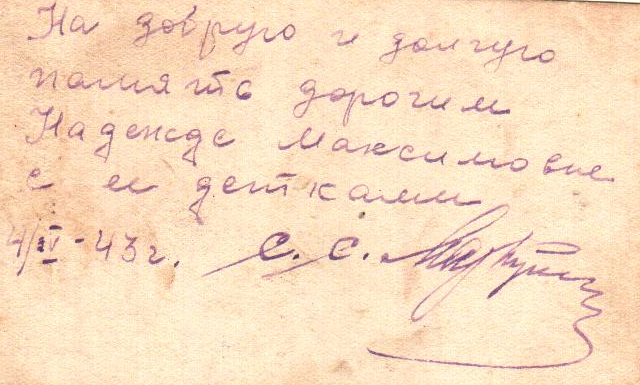 На добрую и долгую
память дорогим
Надежде Максимовне
с ее детками
4/IV-43 г. С. С.